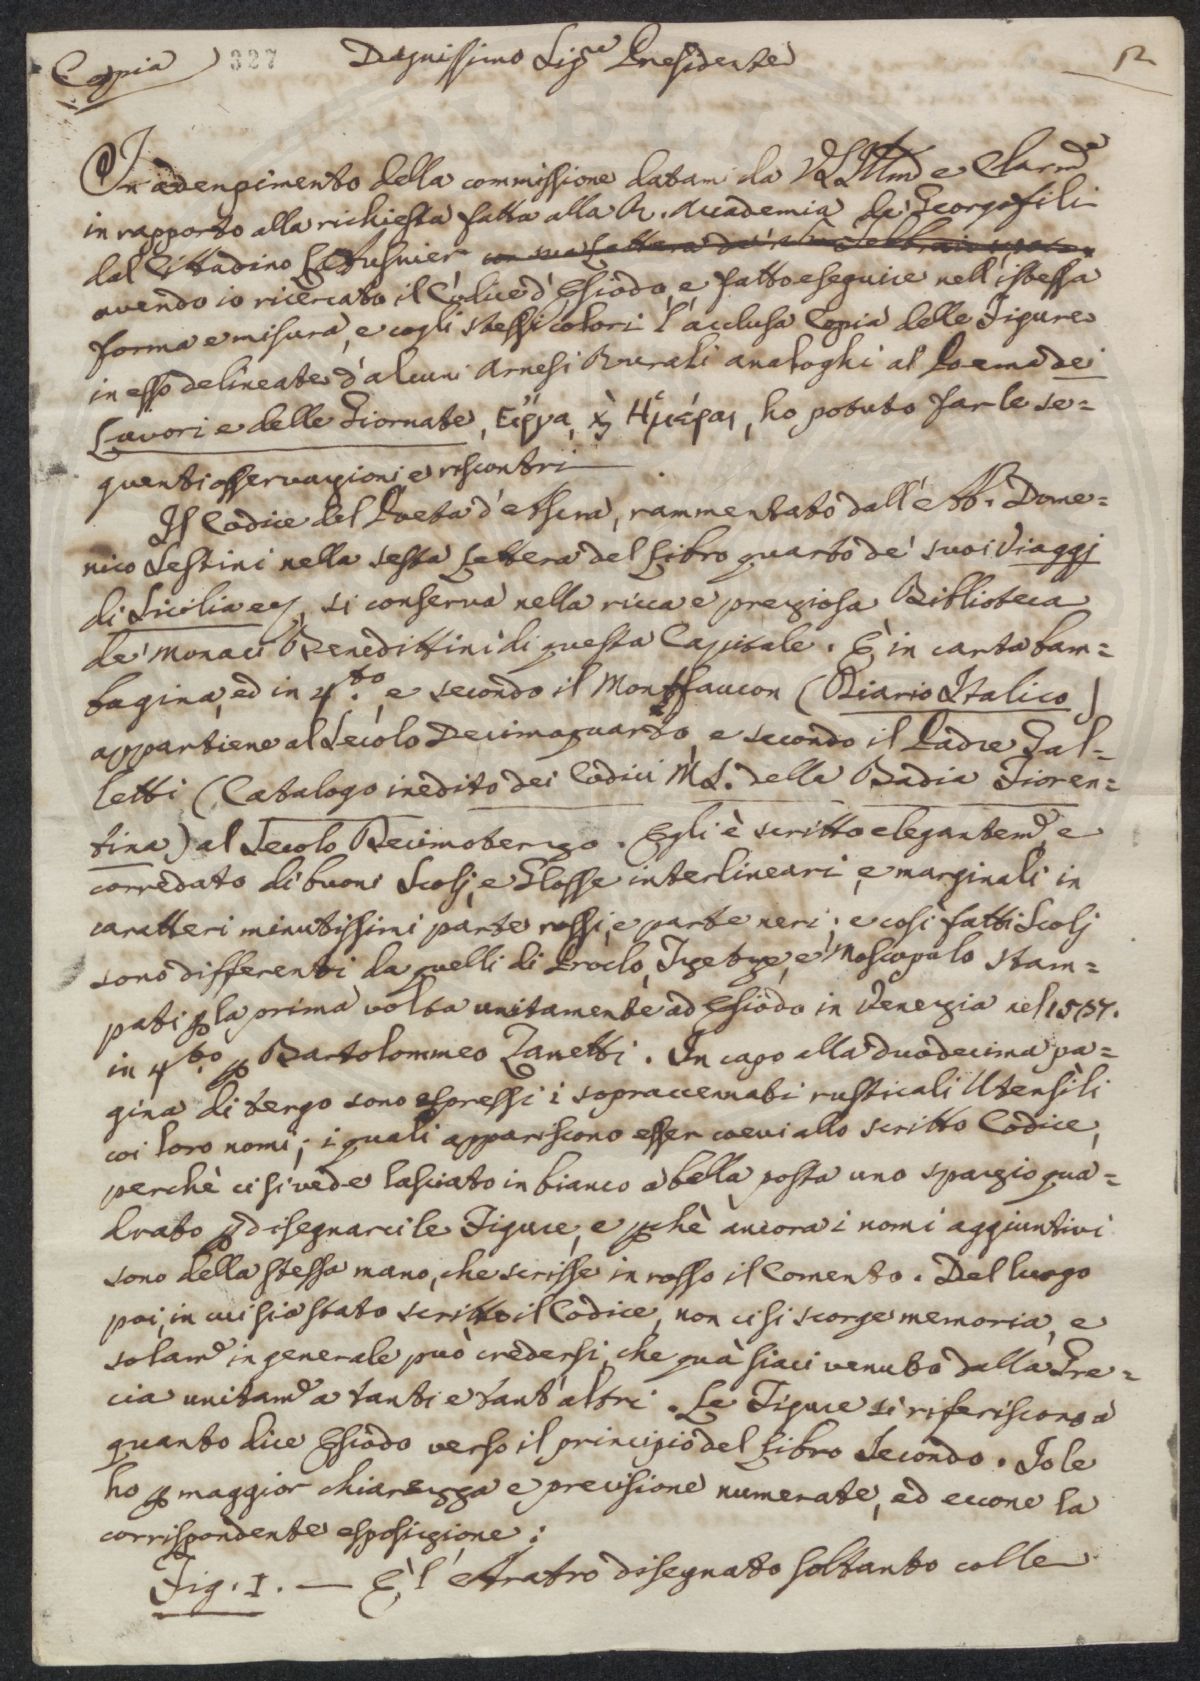 Copia 327 Degnissimo Sig.re Presidente
In adenpimento della commissione datami da VS. Illma e Clarma
in rapporto alla richiesta fatta alla R. Accademia de' Georgofili
dal Cittadino
avendo io ricercato il Codice d'Esiodo, e fatto eseguire nell'istessa
forma e misura, e cogli stessi colori l'acclusa Copia delle Figure
in esso delineate d'alcuni Arnesi Rurali analoghi al Poema dei
Lavori e delle Giornate, Ἔργα, ϗ Ἡμέραι, ho potuto far le se=
guenti osservazioni, e riscontri
Il Codice del Poeta d'Ascra, rammentato dall'Ab. Dome=
nico Sestini nella sesta Lettera del Libro quarto de' suoi Viaggj
di Sicilia ec, si conserva nella ricca e preziosa Biblioteca
de' Monaci Benedittini di questa Capitale. È in carta bam=
bagina, ed in 4.to, e secondo il Montfaucon (Diario Italico)
appartiene al Secolo Decimoquarto, e secondo il Padre Gal=
letti (Catalogo inedito dei Codici MS. della Badia Fioren=
tina) al Secolo Decimoterzo. Egli è scritto elegantem.e, e
corredato di buoni Scolj, e Glosse interlineari, e marginali in
caratteri minutissimi parte rossi, e parte neri; e così fatti Scolj
sono differenti da quelli di Proclo, Tzetze, e Moscopulo stam=
pati p la prima volta unitamente ad Esiodo in Venezia nel 1537.
in 4.to p Bartolommeo Zanetti. In capo alla duodecima pa=
gina di tergo sono espressi i sopraccennati rusticali Utensili
coi loro nomi; i quali appariscono esser coevi allo scritto Codice,
perchè ci si vede lasciato in bianco a bella posta uno spazio qua=
drato p disegnarci le Figure, e pchè ancora i nomi aggiuntivi
sono della stessa mano, che scrisse in rosso il Comento. Del luogo
poi, in cui sia stato scritto il Codice, non ci si scorge memoria, e
solam.e in generale può credersi, che quà siaci venuto dalla Gre=
cia unitam.e a tanti e tant'altri. Le Figure si riferiscono a
quanto dice Esiodo verso il principio del Libro Secondo. Io le
ho p maggior chiarezza e precisione numerate, ed eccone la
corrispondente esposizione:
Fig. I. — È l'Aratro disegnato soltanto colle